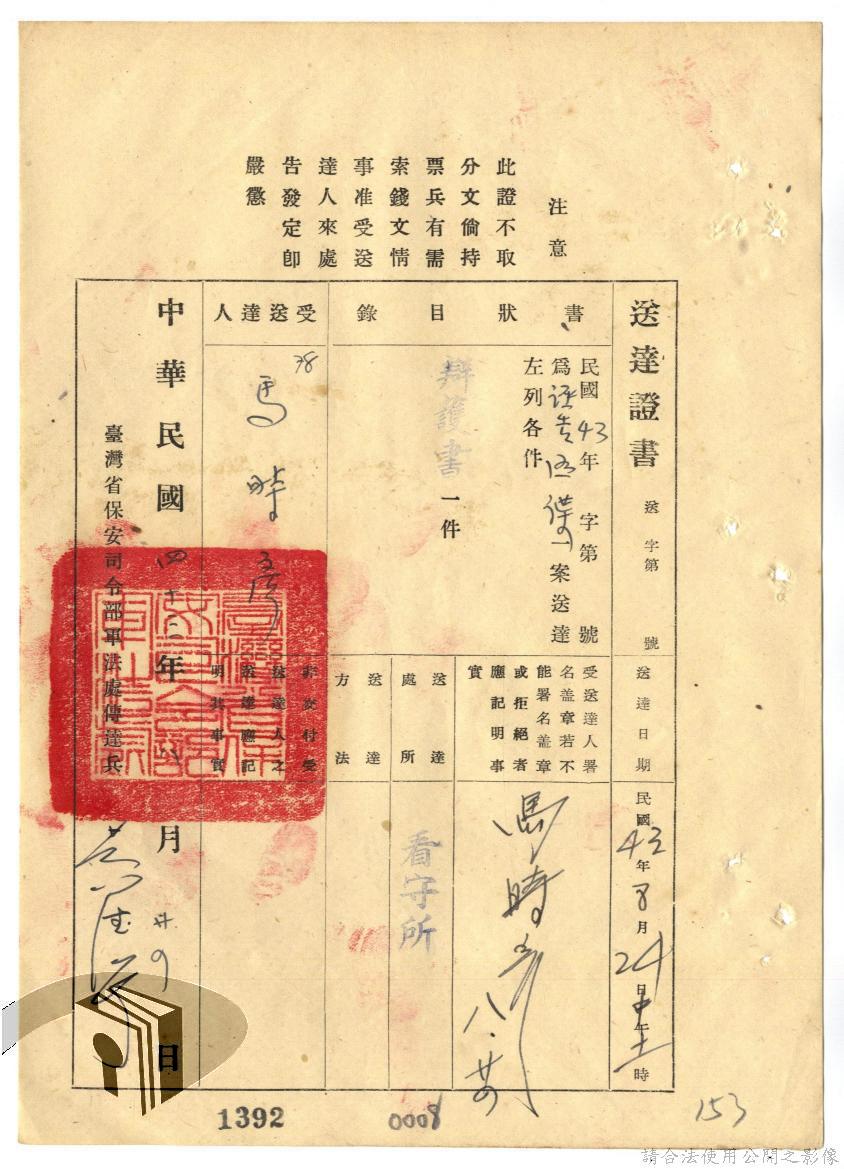 注意
此證不取
分文倘持
票兵有需
索錢文情
事准受送
達人來處
告發定卽
嚴懲
送達證書
送 字第 號
送達日期
民國43年8月24日中午十二時
書狀目錄
民國43年 字第 號
為誣告 案送達
左列各件
辯護書一件
受送達人署
名盖章若不
能署名盖章
或拒絕者
應記明事
實
馬時彥 八.廿四
送達處所
看守所
送達方法
受送達人
38
馬時彥
非交付受
送達人之
送達應記
明其事實
中華民國四十三年八月廿四日
臺灣省保安司令部軍法處傳達兵
1392
0008
153
請合法使用公開之影像